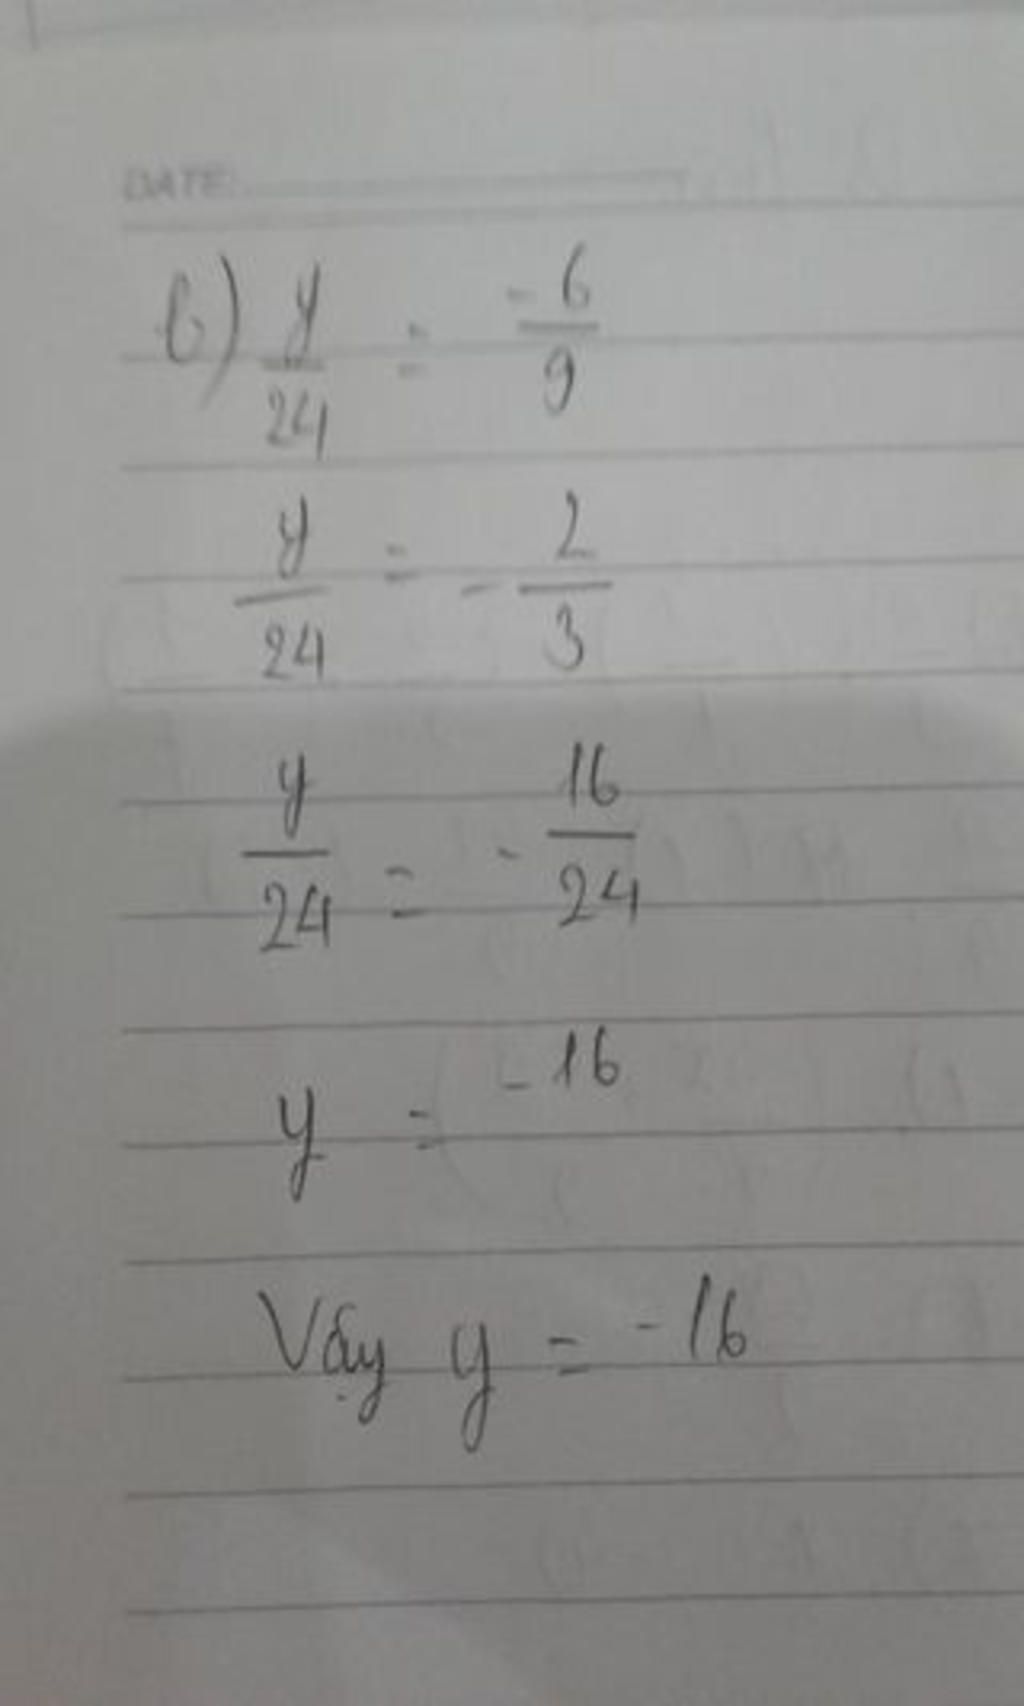 DATE:
b) y/24 = -6/9
y/24 = - 2/3
y/24 = - 16/24
y = -16
Vậy y = -16